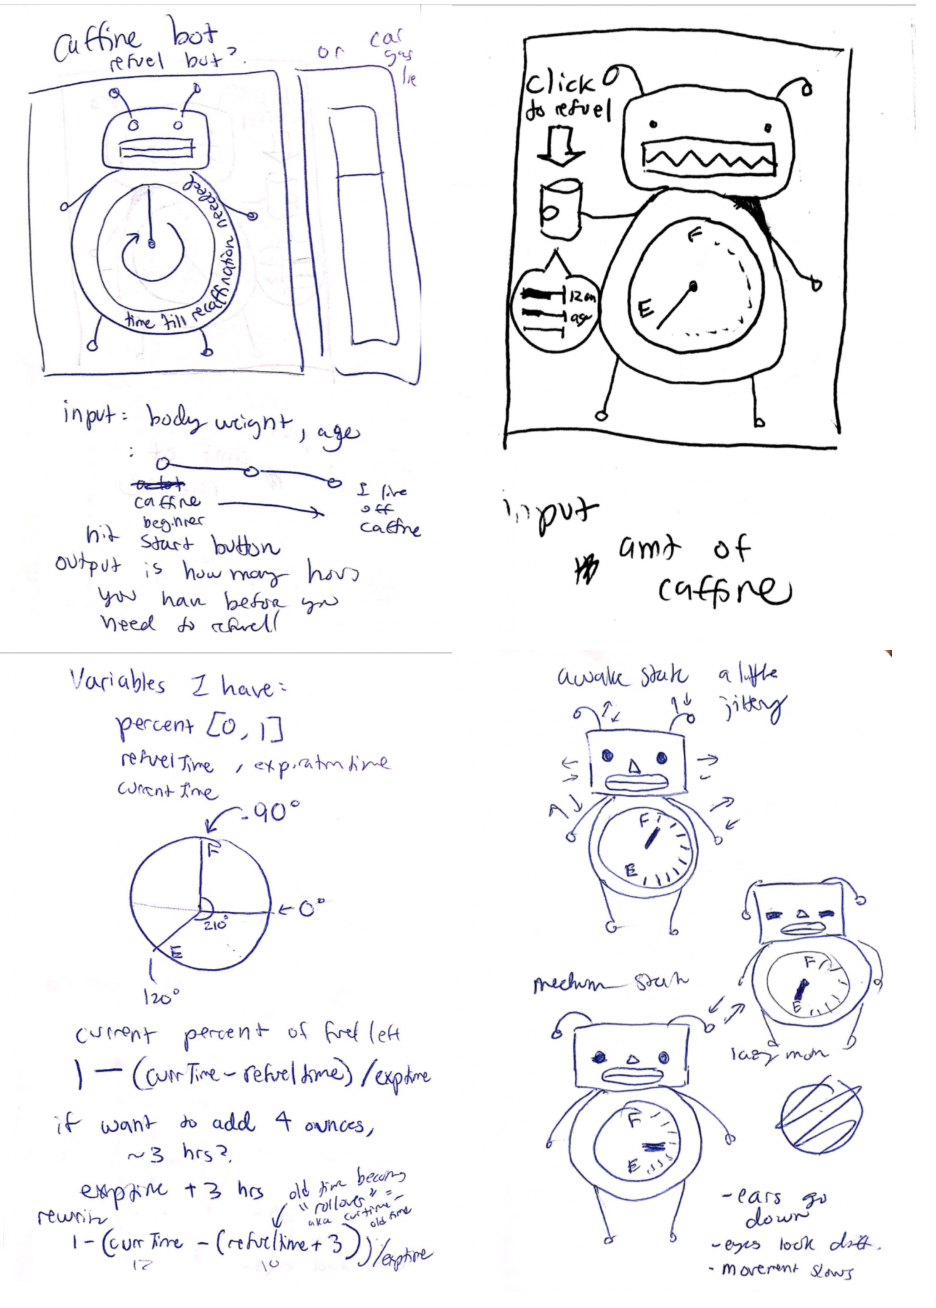 caffine bot
refuel bot?
or car
gas
time till recaffination needed
input: body weight, age
a lot
caffine
beginner
I live
off
caffine
hit start button
output is how many hours
you have before you
need to refuel!
click
to refuel
F
E
12 oz
age
input
amt of
caffine
Variables I have:
percent [0, 1]
refuelTime, expirationtime
currentTime
-90°
F
0°
210°
E
120°
current percent of fuel left
1 - (currTime - refueltime) / exptime
if want to add 4 ounces,
~3 hrs?
exptime + 3 hrs
old time becomes
"rollover" =
aka curtime -
old time
rewrite
1 - (currTime - (refueltime + 3)) / exptime
12
10
awake state a little
jittery
F
E
medium state
F
E
lazy mon
F
E
- ears go
down
- eyes look diff.
- movement slows